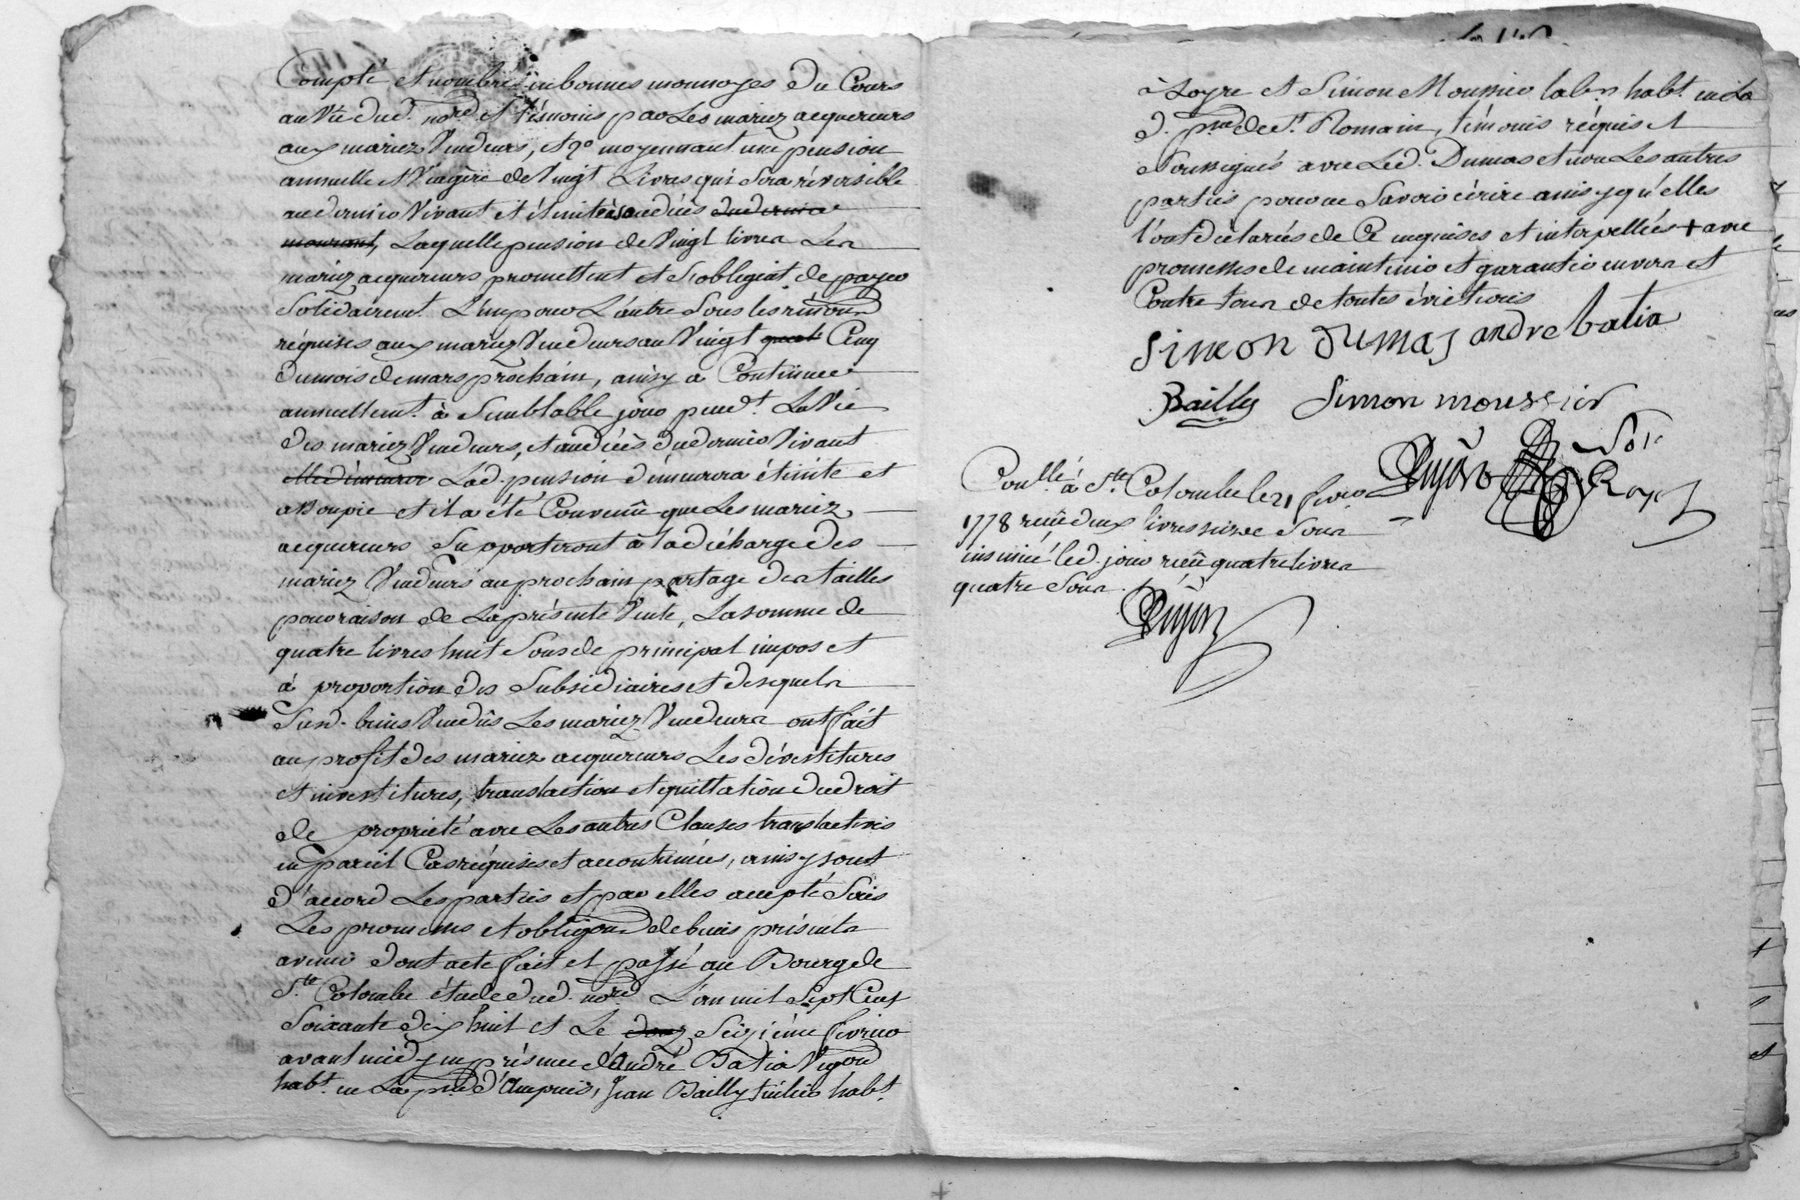 Compté et nombré en bonnes monnoyes du Cours
au vû dud. nore et témoins par Les mariez acquereurs
aux mariez Vendeurs, et 2° moyennant une pension
annuelle et Viagère de Vingt Livres qui Sera réversible
au dernier Vivant et éteinte à son décès du dernier
mourant, Laquelle pension de Vingt livres Les
mariez acquereurs promettent et s'obligent de payer
Solidairemt. L'un pour L'autre Sous les renonons
réquises aux mariez Vendeurs au Vingt quat Cinq
du mois de mars prochain, ainsy à Continuer
annuellemt. à Semblable jour pendt. La Vie
des mariez Vendeurs, et au décès du dernier Vivant
elle démeurer Lad. pension démeurera éteinte et
assoupie et il a été Convenû que Les mariez
acquereurs Suporteront à la décharge des
mariez Vendeurs au prochain partage des tailles
pour raison de La présente Vente, La somme de
quatre livres huit Sous de principal impos et
à proportion des Subsidiaires et desquels
Susd. biens Vendûs Les mariez Vendeurs ont fait
au profit des mariez acquereurs Les dévestitures
et investitures, translaction et quittation du droit
de propriété avec Les autres Clauses translactives
en pareil Cas réquises et accoutumées, ainsy sont
d'accord Les parties et par elles accepté Sous
Les promesses et obligaons de biens présents
avenir dont acte fait et passé au Bourg de
Ste. Colombe étude dud. nore L'an mil Sept Cent
Soixante dix huit et Le douz Seizième fevrier
avant midy en présence d'André Batia Vigon
habt. en La psse d'Ampuis, Jean Bailly tuilier habt.
à Loyre et Simon Moussier labr habt. en la
d. psse de St Romain, témoins réquis et
Soussignés avec Led. Dumas et non Les autres
parties pour ne Savoir écrire ainsy qu'elles
l'ont déclarés de Ce enquises et interpellées + avec
promesses de maintenir et garantir envers et
Contre tous de toutes évictions
Simon dumas andre batia
Bailly Simon moussier
Not.
Roy.
Coullé à Ste. Colombe le 21 fevrer
1778 reçu deux livres seize Sous
insinué led. jour reçu quatre livres
quatre Sous.